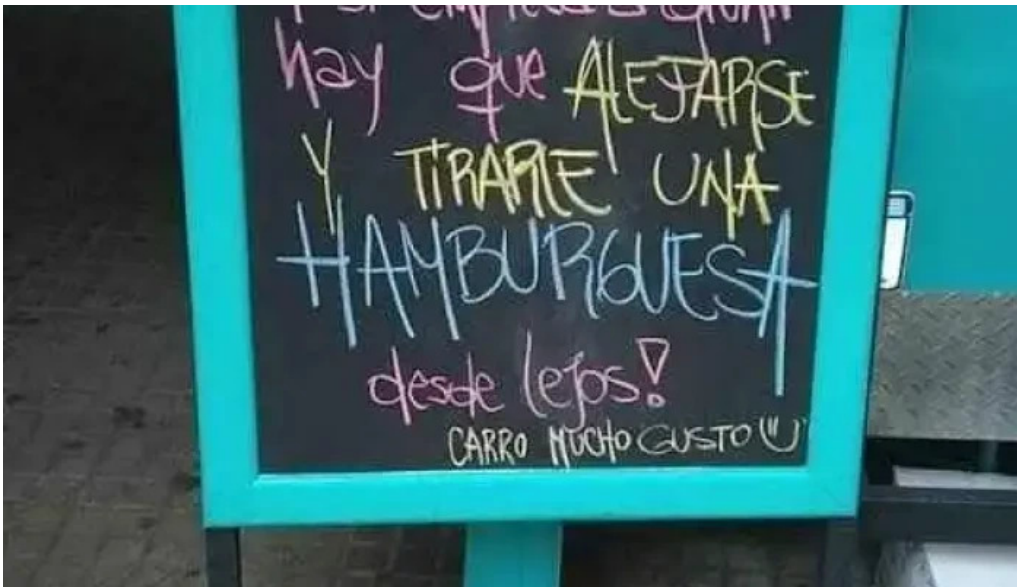 hay que ALEJARSE
Y TIRARLE UNA
HAMBURGUESA
desde lejos!
CARRO MUCHO GUSTO